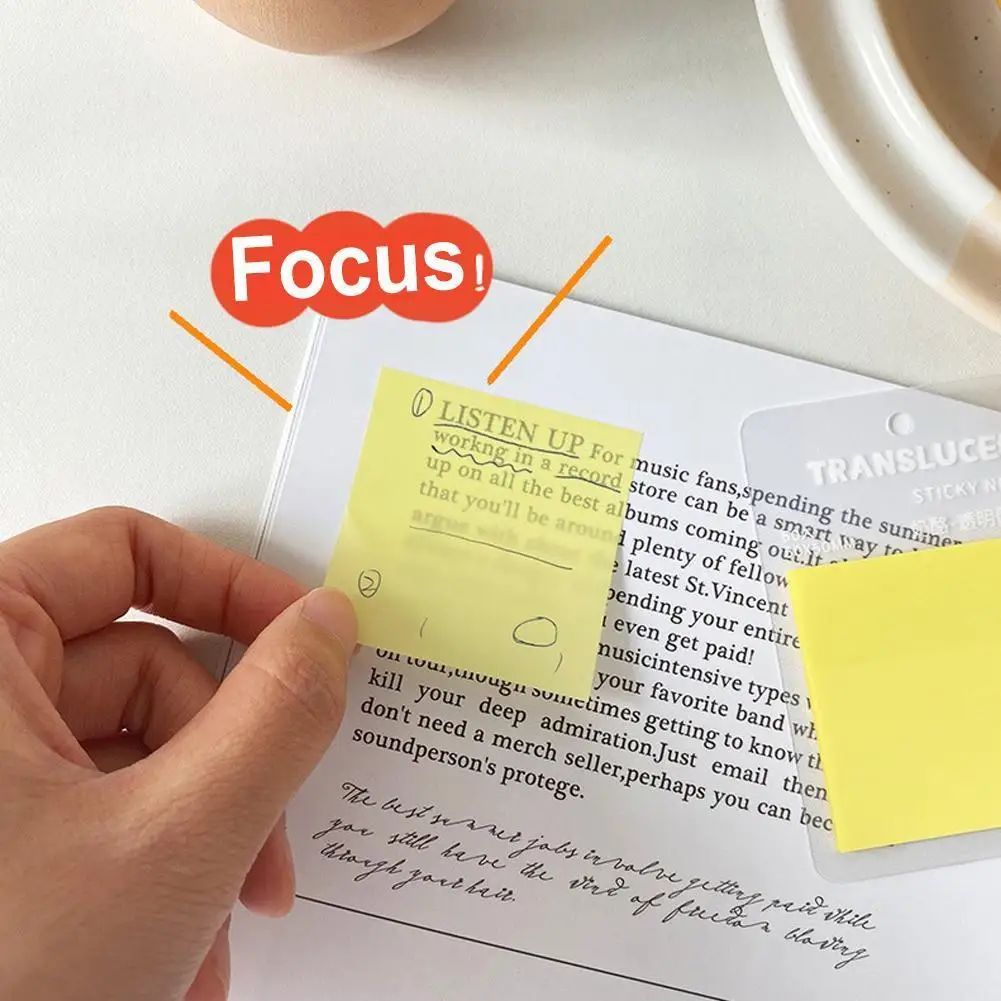 Focus!
① LISTEN UP For music fans,spending the summer
workng in a record store can be a smart way to
up on all the best albums coming out.It
that you'll be around plenty of fellow
argue with latest St.Vincent
pending your entire
② even get paid!
musicintensive types
on tour,though sometimes your favorite band wh
kill your deep admiration.Just getting to know th
don't need a merch seller,perhaps email then
soundperson's protege. you can bec
The best summer jobs involve getting paid while
you still have the wind of freedom blowing
through your hair.
TRANSLUCE
STICKY N
50MM